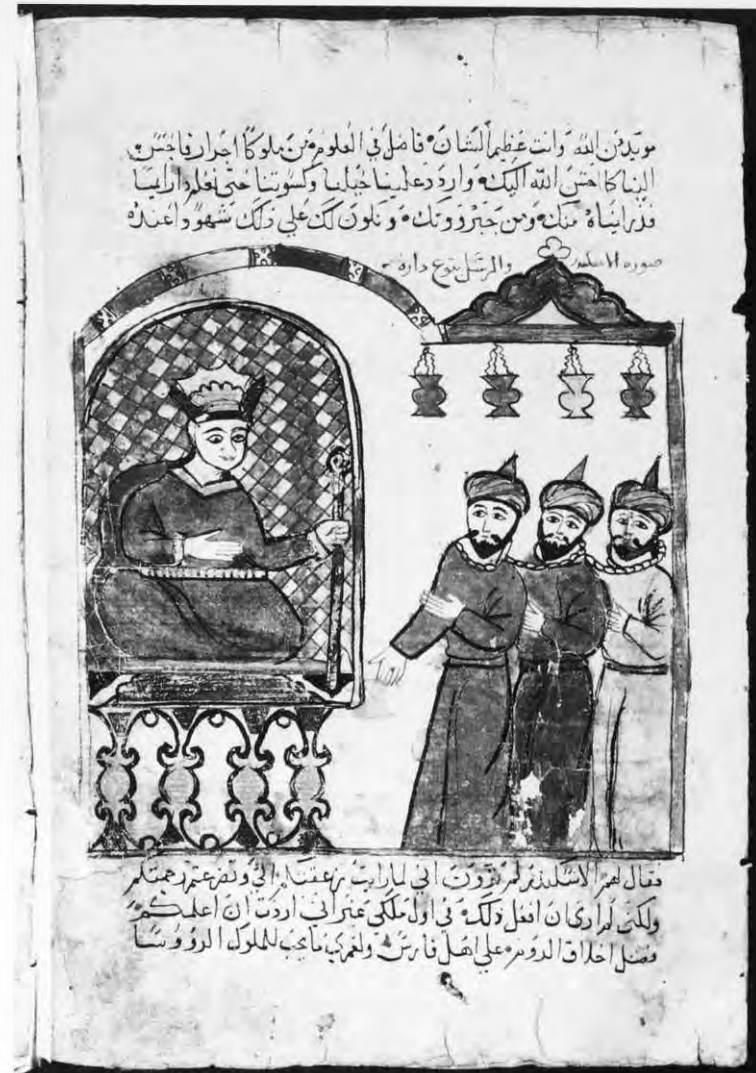 مويد من الله وانت عظيم الشان فاضل في العلوم من ملوكا احرار فاحسن
الينا كما احسن الله اليك وارد د علينا خيلنا وكسوتنا حتى نعلم دارا بما
قد رايناه منك ومن جبروتك ونكون لك علي ذلك شهودا عنده
صورة الاسكندر والمرسل دارة
فقال لهم الاسكندر اني لما رايت الي وتضرعتم رحمتكم
ولكن لم اري ان افعل ذلك في اول ملكي غير اني اردت ان اعلمكم
فضل اخلاق الروم علي اهل فارس يجب للملوك الروونسا